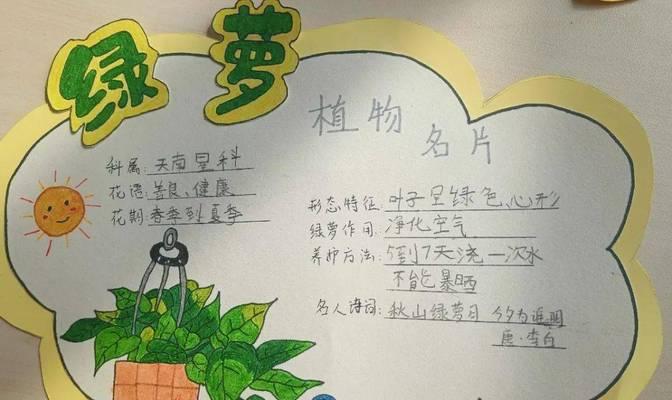 绿萝
植物
名片
科属:天南星科
花语:善良、健康
花期:春季到夏季
形态特征:叶子呈绿色、心形
绿萝作用:净化空气
养护方法:5到7天浇一次水
不能暴晒
名人诗词:秋山绿萝月 今夕为谁明
唐·李白